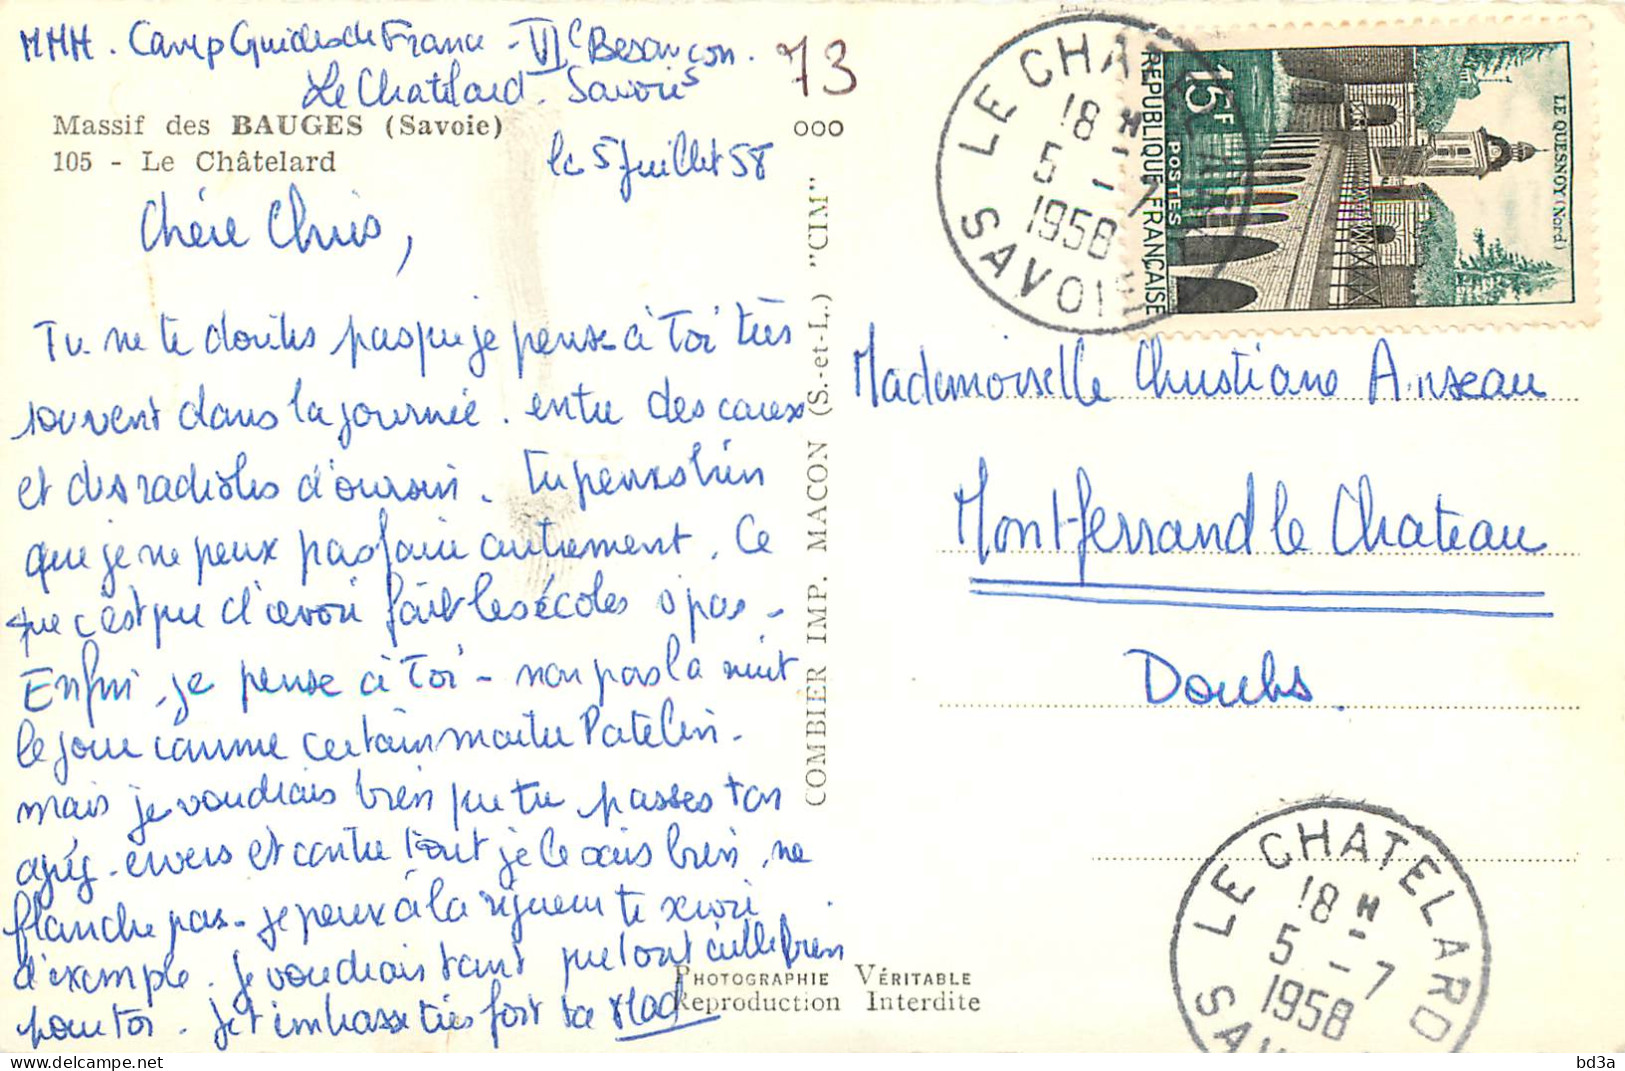 MMM. Camp Guides de France - VIe Besançon.
Le Chatelard. Savoie
73
Massif des BAUGES (Savoie)
105 - Le Châtelard
ooo
le 5 Juillet 58
Chère Chris,
Tu ne te doutes pas que je pense à Toi très
souvent dans la journée. entre des carex
et des radioles d'oursin. Tu penses bien
que je ne peux pas faire autrement. Ce
que c'est que d'avoir fait les écoles o pas -
Enfin, je pense à Toi - non pas la nuit
le jour comme certain maître Patelin.
mais je voudrais bien que tu passes ton
agrég. envers et contre tout je le sais bien, ne
flanche pas - je peux à la rigueur te servir
d'exemple. Je voudrais tant que tout aille bien
pour toi. Je t'embrasse très fort ta Mad
COMBIER IMP. MACON (S.-et-L.) "CIM"
PHOTOGRAPHIE VÉRITABLE
Reproduction Interdite
LE CHATELARD
18 H
5 - 7
1958
SAVOIE
15F
POSTES
REPUBLIQUE FRANÇAISE
LE QUESNOY (Nord)
Mademoiselle Christiane Anseau
Montferrand le Chateau
Doubs.
LE CHATELARD
18 H
5 - 7
1958
bd3a